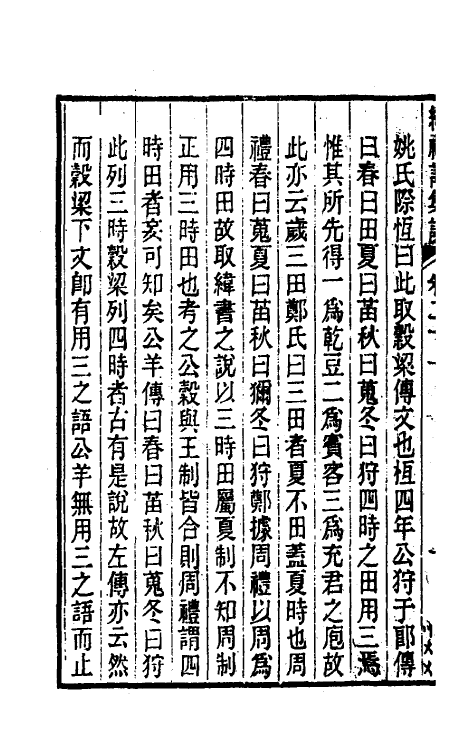 姚氏際恆曰此取穀梁傳文也桓四年公狩于郎傳
曰春曰田夏曰苗秋曰蒐冬曰狩四時之田用三焉
惟其所先得一爲乾豆二爲賓客三爲充君之庖故
此亦云歲三田鄭氏曰三田者夏不田蓋夏時也周
禮春曰蒐夏曰苗秋曰獮冬曰狩鄭據周禮以周爲
四時田故取緯書之說以三時田屬夏制不知周制
正用三時田也考之公穀與王制皆合則周禮謂四
時田者妄可知矣公羊傳曰春曰苗秋曰蒐冬曰狩
此列三時穀梁列四時者古有是說故左傳亦云然
而穀梁下文卽有用三之語公羊無用三之語而止